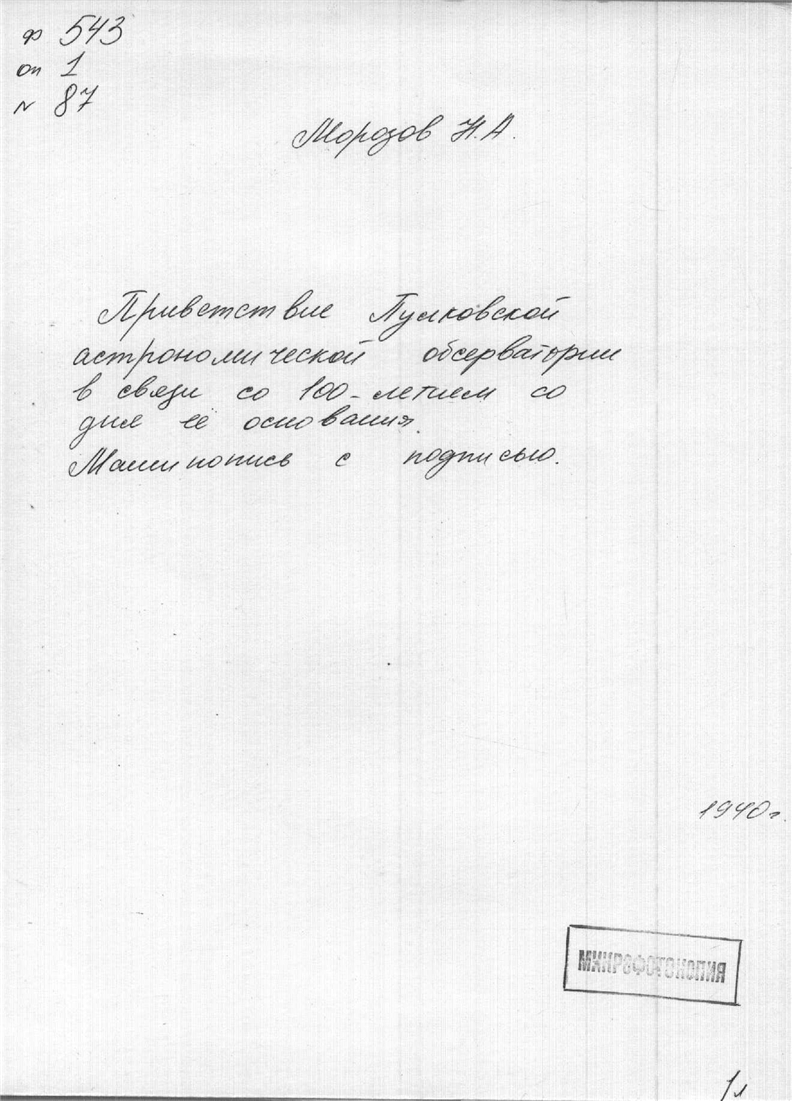 ф 543
оп 1
N 87
Морозов Н.А.
Приветствие Пулковской
астрономической обсерватории
в связи со 100-летием со
дня её основания.
Машинопись с подписью.
1940г.
МИКРОФОТОКОПИЯ
1л